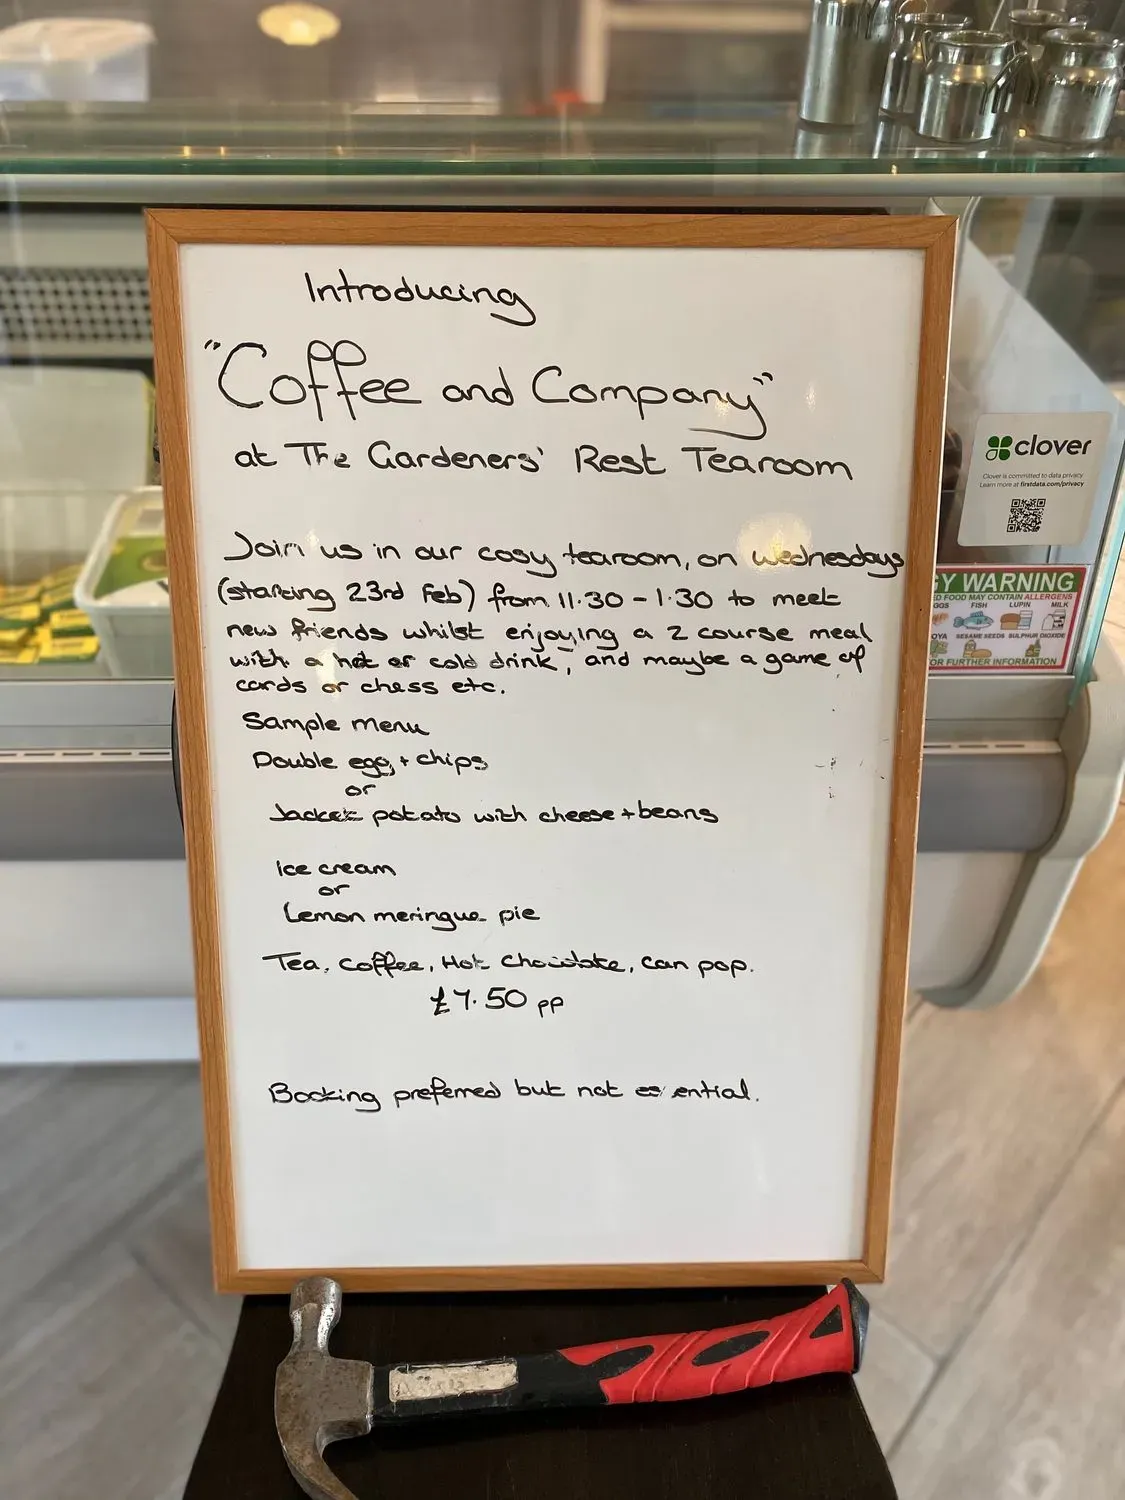 Introducing
"Coffee and Company"
at The Gardeners' Rest Tearoom
Join us in our cosy tearoom, on Wednesdays
(starting 23rd Feb) from 11.30 - 1.30 to meet
new friends whilst enjoying a 2 course meal
with a hot or cold drink, and maybe a game of
cards or chess etc.
Sample menu
Double egg + chips
or
Jacket potato with cheese + beans
Ice cream
or
Lemon meringue pie
Tea, Coffee, Hot Chocolate, Can pop.
£7.50 pp
Booking preferred but not essential.
clover
Clover is committed to data privacy
Learn more at firstdata.com/privacy
GY WARNING
ED FOOD MAY CONTAIN ALLERGENS
GGS FISH LUPIN MILK
OYA SESAME SEEDS SULPHUR DIOXIDE
OR FURTHER INFORMATION